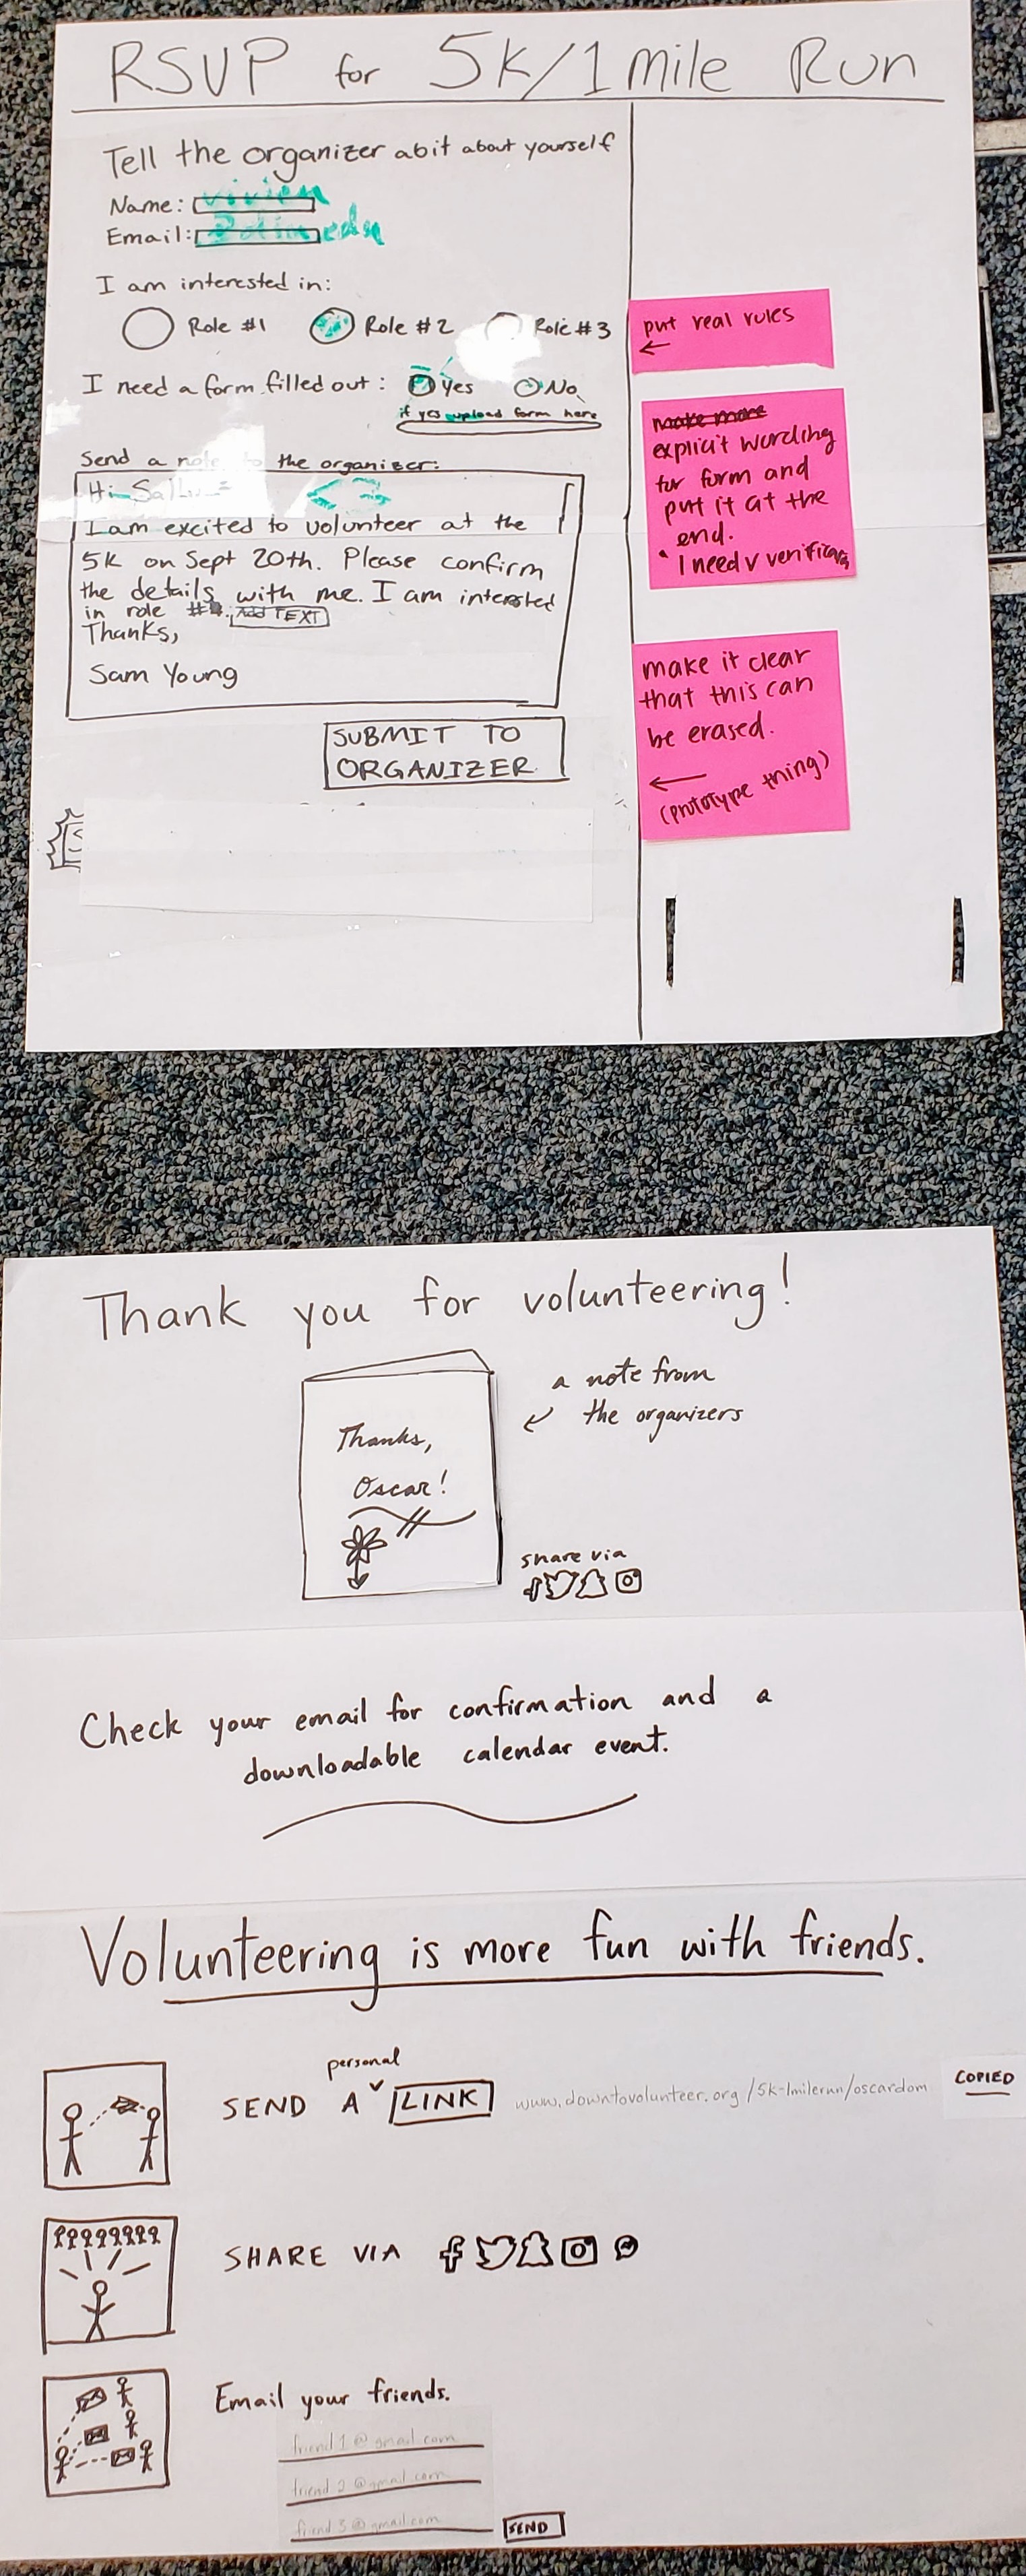 RSVP for 5k/1mile Run
Tell the organizer a bit about yourself
Name: vivien
Email: edu
I am interested in:
Role #1 Role #2 Role #3
I need a form filled out: Yes No
if yes upload form here
Send a note to the organizer:
Hi
I am excited to volunteer at the
5k on Sept 20th. Please confirm
the details with me. I am interested
in role # Add TEXT
Thanks,
Sam Young
SUBMIT TO
ORGANIZER
put real rules
←
make more
explicit wording
for form and
put it at the
end.
• I need v
make it clear
that this can
be erased.
←
(prototype thing)
Thank you for volunteering!
a note from
the organizers
Thanks,
Oscar!
share via
Check your email for confirmation and a
downloadable calendar event.
Volunteering is more fun with friends.
personal
SEND A LINK www.downtovolunteer.org/5k-1milerun/oscardom COPIED
SHARE VIA
Email your friends.
friend 1 @ gmail.com
friend 2 @gmail.com
friend 3@gmail.com
SEND